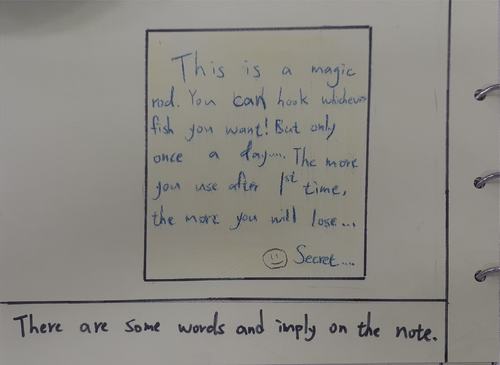 This is a magic
rod. You can hook whichever
fish you want! But only
once a day.... The more
you use after 1st time,
the more you will lose...
Secret....
There are some words and imply on the note.